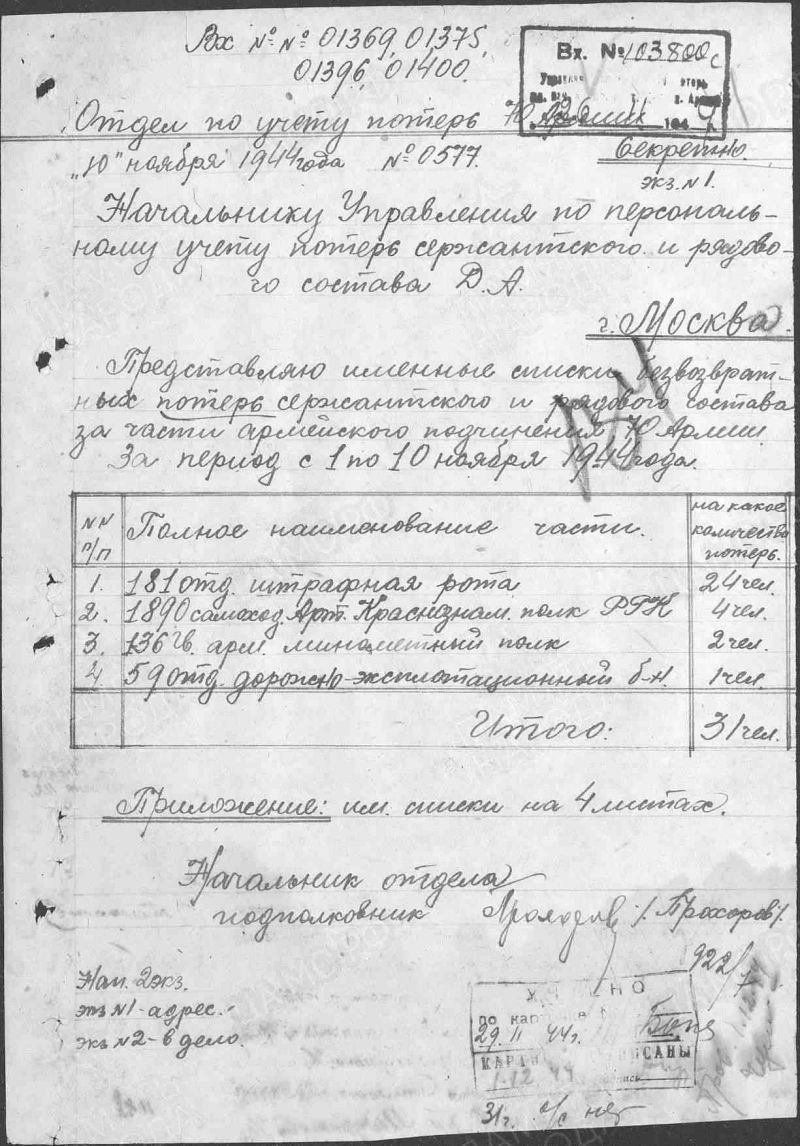 Вх №№ 01369, 01375,
01396, 01400.
Вх. № 103800с
194
Отдел по учету потерь 70 Армии
"10" ноября 1944 года №0577.
Секретно.
экз. №1.
Начальнику Управления по персональ-
ному учету потерь сержантского и рядово-
го состава Д.А.
г. Москва.
Представляю именные списки безвозврат-
ных потерь сержантского и рядового состава
за части армейского подчинения 70 Армии
За период с 1 по 10 ноября 1944 года.
NN п/п Полное наименование части. на какое количество потерь.
1. 181 отд. штрафная рота 24 чел.
2. 1890 самоход. Арт. Краснознам. полк РГК 4 чел.
3. 136 Гв. арм. минометный полк 2 чел.
4. 59 отд. дорожно-эксплотационный б-н. 1 чел.
Итого: 31 чел.
Приложение: им. списки на 4 листах.
Начальник отдела
подполковник /Прохоров/.
922/
Нап. 2 экз.
экз №1 - адрес.
экз №2 - в дело.
по
29 11 44г.
1.12 44
31г. о/с нет